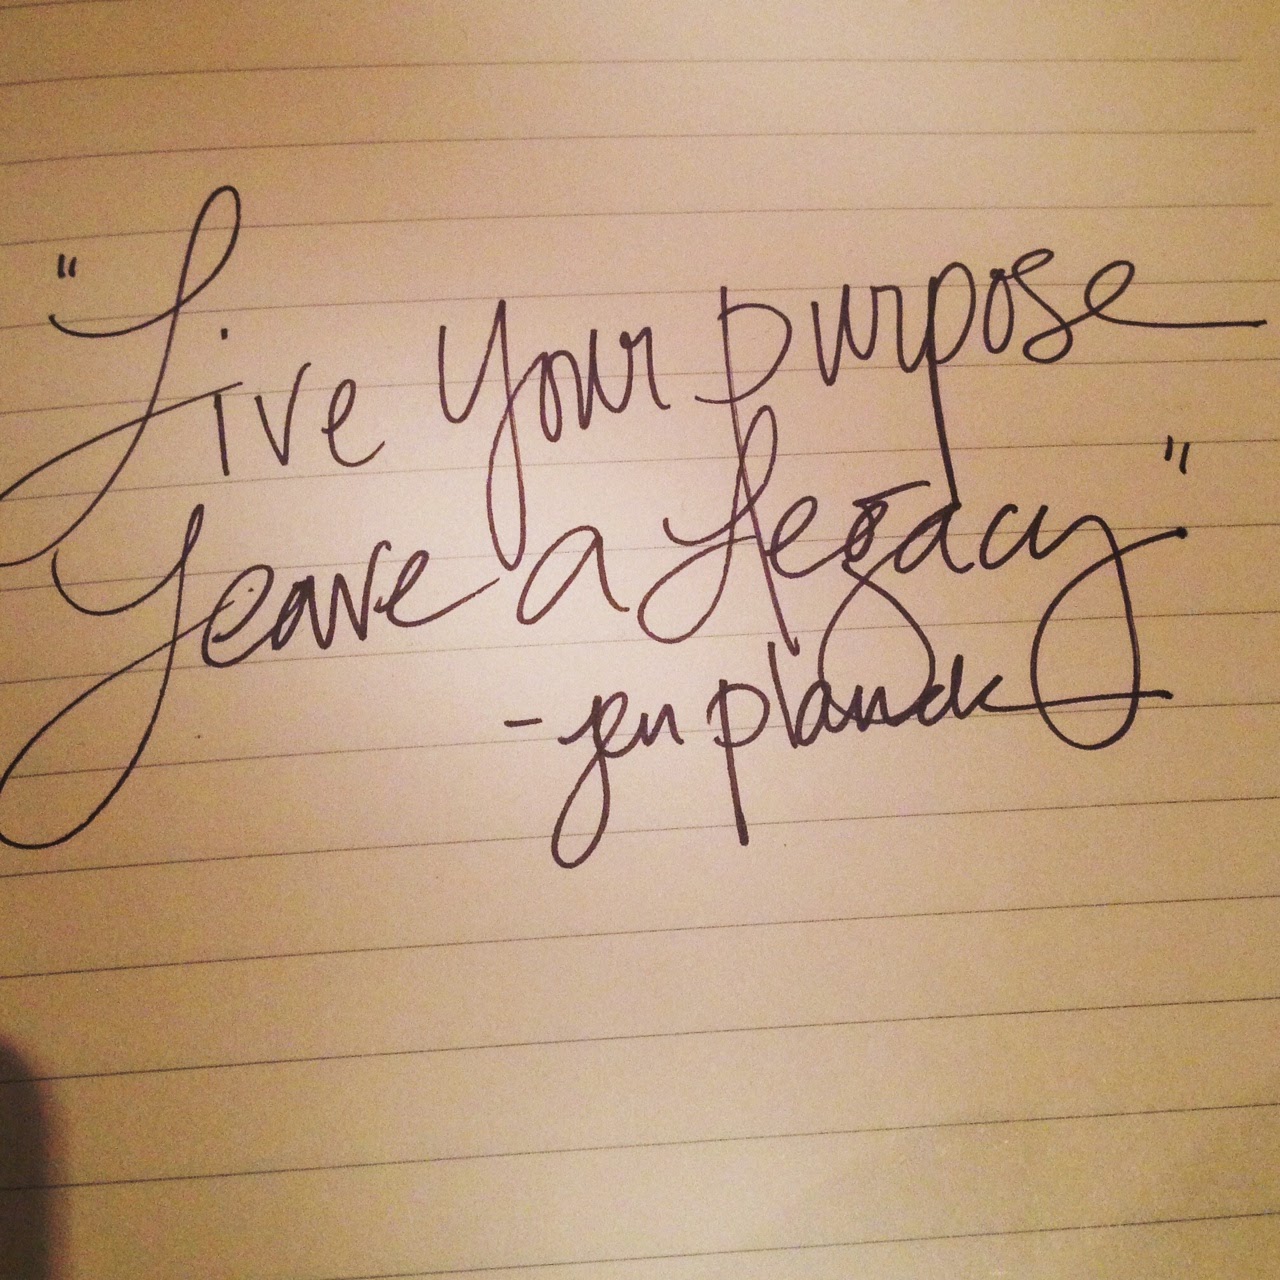 "Live your purpose
Leave a Legacy"
- jen planck